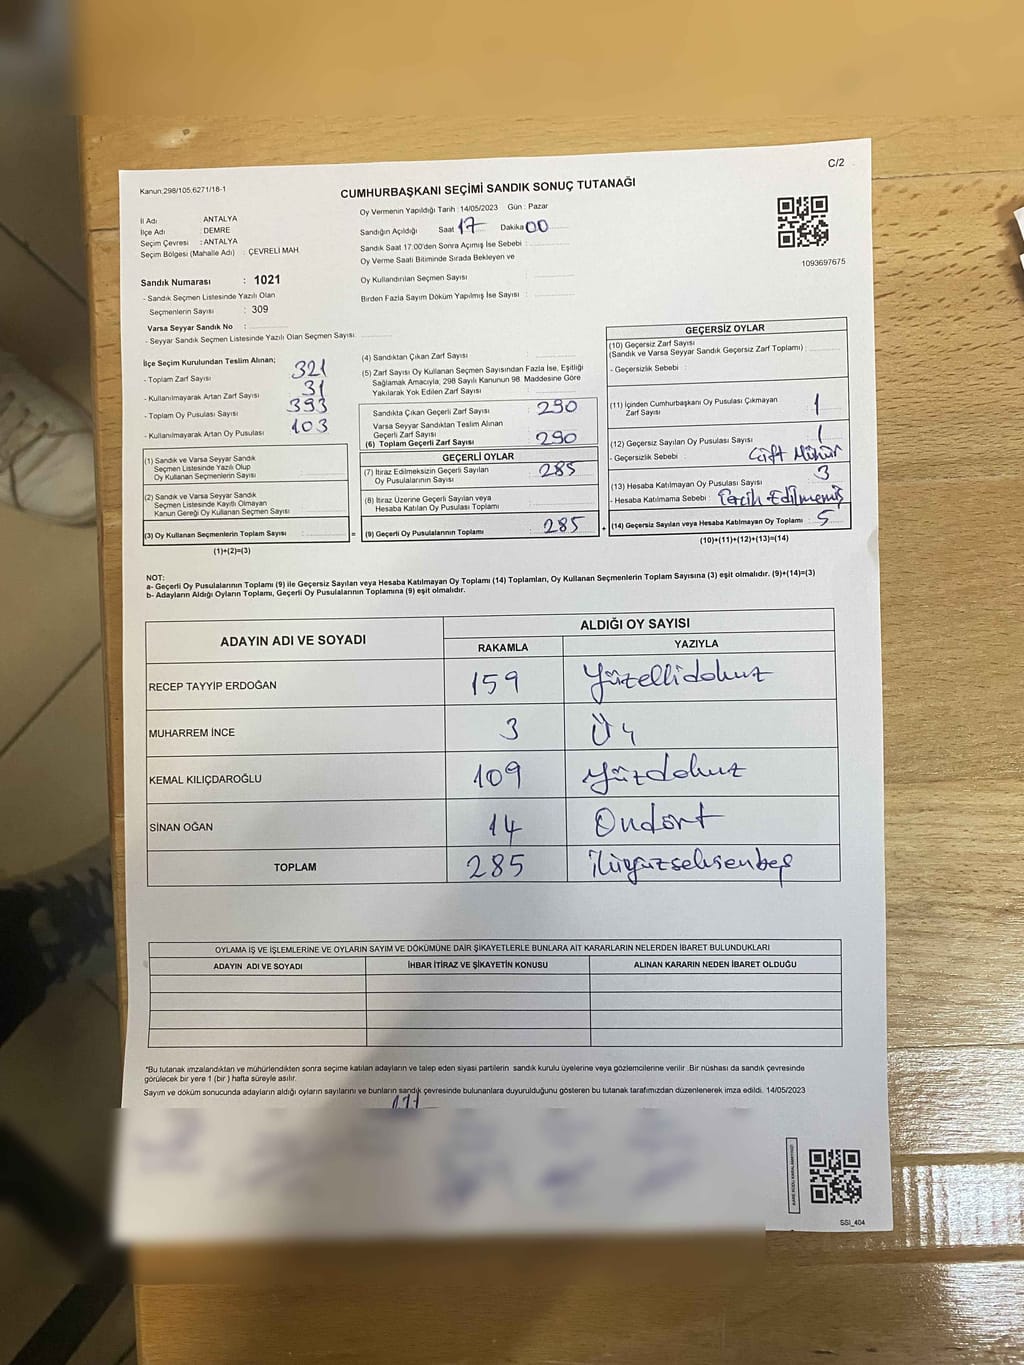 C/2
Kanun;298/105;6271/18-1
CUMHURBAŞKANI SEÇİMİ SANDIK SONUÇ TUTANAĞI
İl Adı : ANTALYA
İlçe Adı : DEMRE
Seçim Çevresi : ANTALYA
Seçim Bölgesi (Mahalle Adı) : ÇEVRELİ MAH.
Oy Vermenin Yapıldığı Tarih :14/05/2023 Gün : Pazar
Sandığın Açıldığı Saat 17 Dakika 00
Sandık Saat 17:00'den Sonra Açımış İse Sebebi :
Oy Verme Saati Bitiminde Sırada Bekleyen ve
Oy Kullandırılan Seçmen Sayısı :
Birden Fazla Sayım Döküm Yapılmış İse Sayısı :
1093697675
Sandık Numarası : 1021
- Sandık Seçmen Listesinde Yazılı Olan
Seçmenlerin Sayısı : 309
Varsa Seyyar Sandık No :
- Seyyar Sandık Seçmen Listesinde Yazılı Olan Seçmen Sayısı :
İlçe Seçim Kurulundan Teslim Alınan;
- Toplam Zarf Sayısı 321
- Kullanılmayarak Artan Zarf Sayısı 31
- Toplam Oy Pusulası Sayısı 393
- Kullanılmayarak Artan Oy Pusulası 103
(1) Sandık ve Varsa Seyyar Sandık
Seçmen Listesinde Yazılı Olup
Oy Kullanan Seçmenlerin Sayısı :
(2) Sandık ve Varsa Seyyar Sandık
Seçmen Listesinde Kayıtlı Olmayan
Kanun Gereği Oy Kullanan Seçmen Sayısı :
(3) Oy Kullanan Seçmenlerin Toplam Sayısı :
(1)+(2)=(3)
(4) Sandıktan Çıkan Zarf Sayısı :
(5) Zarf Sayısı Oy Kullanan Seçmen Sayısından Fazla İse, Eşitliği
Sağlamak Amacıyla, 298 Sayılı Kanunun 98. Maddesine Göre
Yakılarak Yok Edilen Zarf Sayısı :
Sandıkta Çıkan Geçerli Zarf Sayısı : 290
Varsa Seyyar Sandıktan Teslim Alınan
Geçerli Zarf Sayısı :
(6) Toplam Geçerli Zarf Sayısı : 290
GEÇERLİ OYLAR
(7) İtiraz Edilmeksizin Geçerli Sayılan
Oy Pusulalarının Sayısı : 285
(8) İtiraz Üzerine Geçerli Sayılan veya
Hesaba Katılan Oy Pusulası Toplamı :
= (9) Geçerli Oy Pusulalarının Toplamı : 285
GEÇERSİZ OYLAR
(10) Geçersiz Zarf Sayısı
(Sandık ve Varsa Seyyar Sandık Geçersiz Zarf Toplamı) :
- Geçersizlik Sebebi :
(11) İçinden Cumhurbaşkanı Oy Pusulası Çıkmayan
Zarf Sayısı : 1
(12) Geçersiz Sayılan Oy Pusulası Sayısı : 1
- Geçersizlik Sebebi : Çift Mühür
(13) Hesaba Katılmayan Oy Pusulası Sayısı : 3
- Hesaba Katılmama Sebebi : Tercih Edilmemiş
+ (14) Geçersiz Sayılan veya Hesaba Katılmayan Oy Toplamı : 5
(10)+(11)+(12)+(13)=(14)
NOT:
a- Geçerli Oy Pusulalarının Toplamı (9) ile Geçersiz Sayılan veya Hesaba Katılmayan Oy Toplamı (14) Toplamları, Oy Kullanan Seçmenlerin Toplam Sayısına (3) eşit olmalıdır. (9)+(14)=(3)
b- Adayların Aldığı Oyların Toplamı, Geçerli Oy Pusulalarının Toplamına (9) eşit olmalıdır.
ADAYIN ADI VE SOYADI ALDIĞI OY SAYISI
RAKAMLA YAZIYLA
RECEP TAYYİP ERDOĞAN 159 Yüzellidokuz
MUHARREM İNCE 3 Üç
KEMAL KILIÇDAROĞLU 109 Yüzdokuz
SİNAN OĞAN 14 Ondört
TOPLAM 285 İkiyüzseksenbeş
OYLAMA İŞ VE İŞLEMLERİNE VE OYLARIN SAYIM VE DÖKÜMÜNE DAİR ŞİKAYETLERLE BUNLARA AİT KARARLARIN NELERDEN İBARET BULUNDUKLARI
ADAYIN ADI VE SOYADI İHBAR İTİRAZ VE ŞİKAYETİN KONUSU ALINAN KARARIN NEDEN İBARET OLDUĞU
*Bu tutanak imzalandıktan ve mühürlendikten sonra seçime katılan adayların ve talep eden siyasi partilerin sandık kurulu üyelerine veya gözlemcilerine verilir .Bir nüshası da sandık çevresinde
görülecek bir yere 1 (bir ) hafta süreyle asılır.
Sayım ve döküm sonucunda adayların aldığı oyların sayılarını ve bunların sandık çevresinde bulunanlara duyurulduğunu gösteren bu tutanak tarafımızdan düzenlenerek imza edildi. 14/05/2023
SSI_404